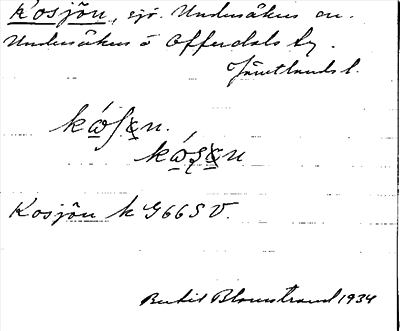 Kosjön, sjö. Undersåkers sn.
Undersåkers o Offerdals tg.
Jämtlands l.
kó̱ʃɛ̱n.
kó̱ʂɛ̱n
Kosjön k G66SV.
Bertil Blomstrand 1934